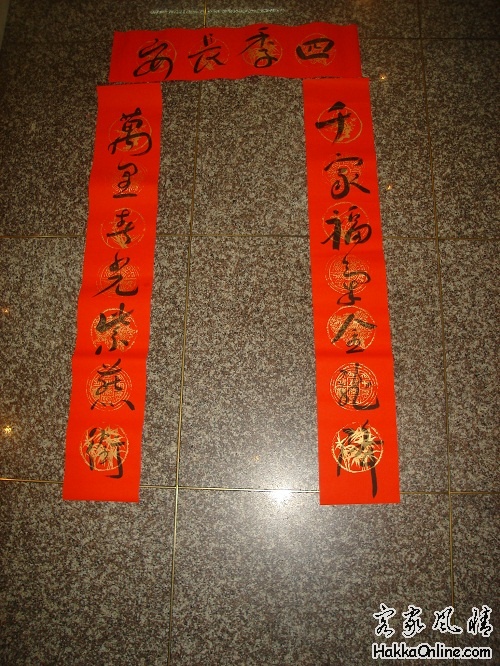 四季長安
千家福氣金龍降
萬里春光紫燕銜
客家風情
HakkaOnline.com